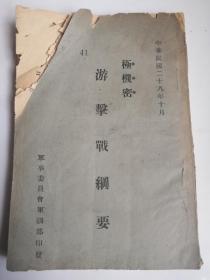 中華民國二十八年十月
極機密
41
游擊戰綱要
軍事委員會軍訓部印發